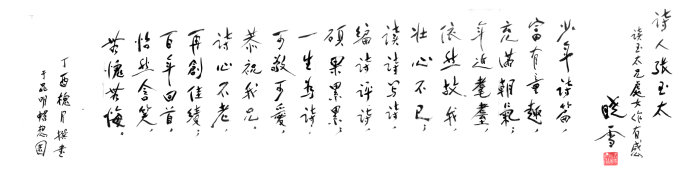 诗人张玉太
读玉太兄处女作有感
晓雪
少年诗篇，
富有童趣，
充满朝气。
年近耄耋，
依然故我，
壮心不已，
读诗写诗，
编诗评诗，
硕果累累，
一生为诗，
可敬可爱，
恭祝我兄，
诗心不老，
再创佳绩，
百年回首，
怡然含笑，
无愧无悔。
丁酉槐月撰书
于昆明翠怒园